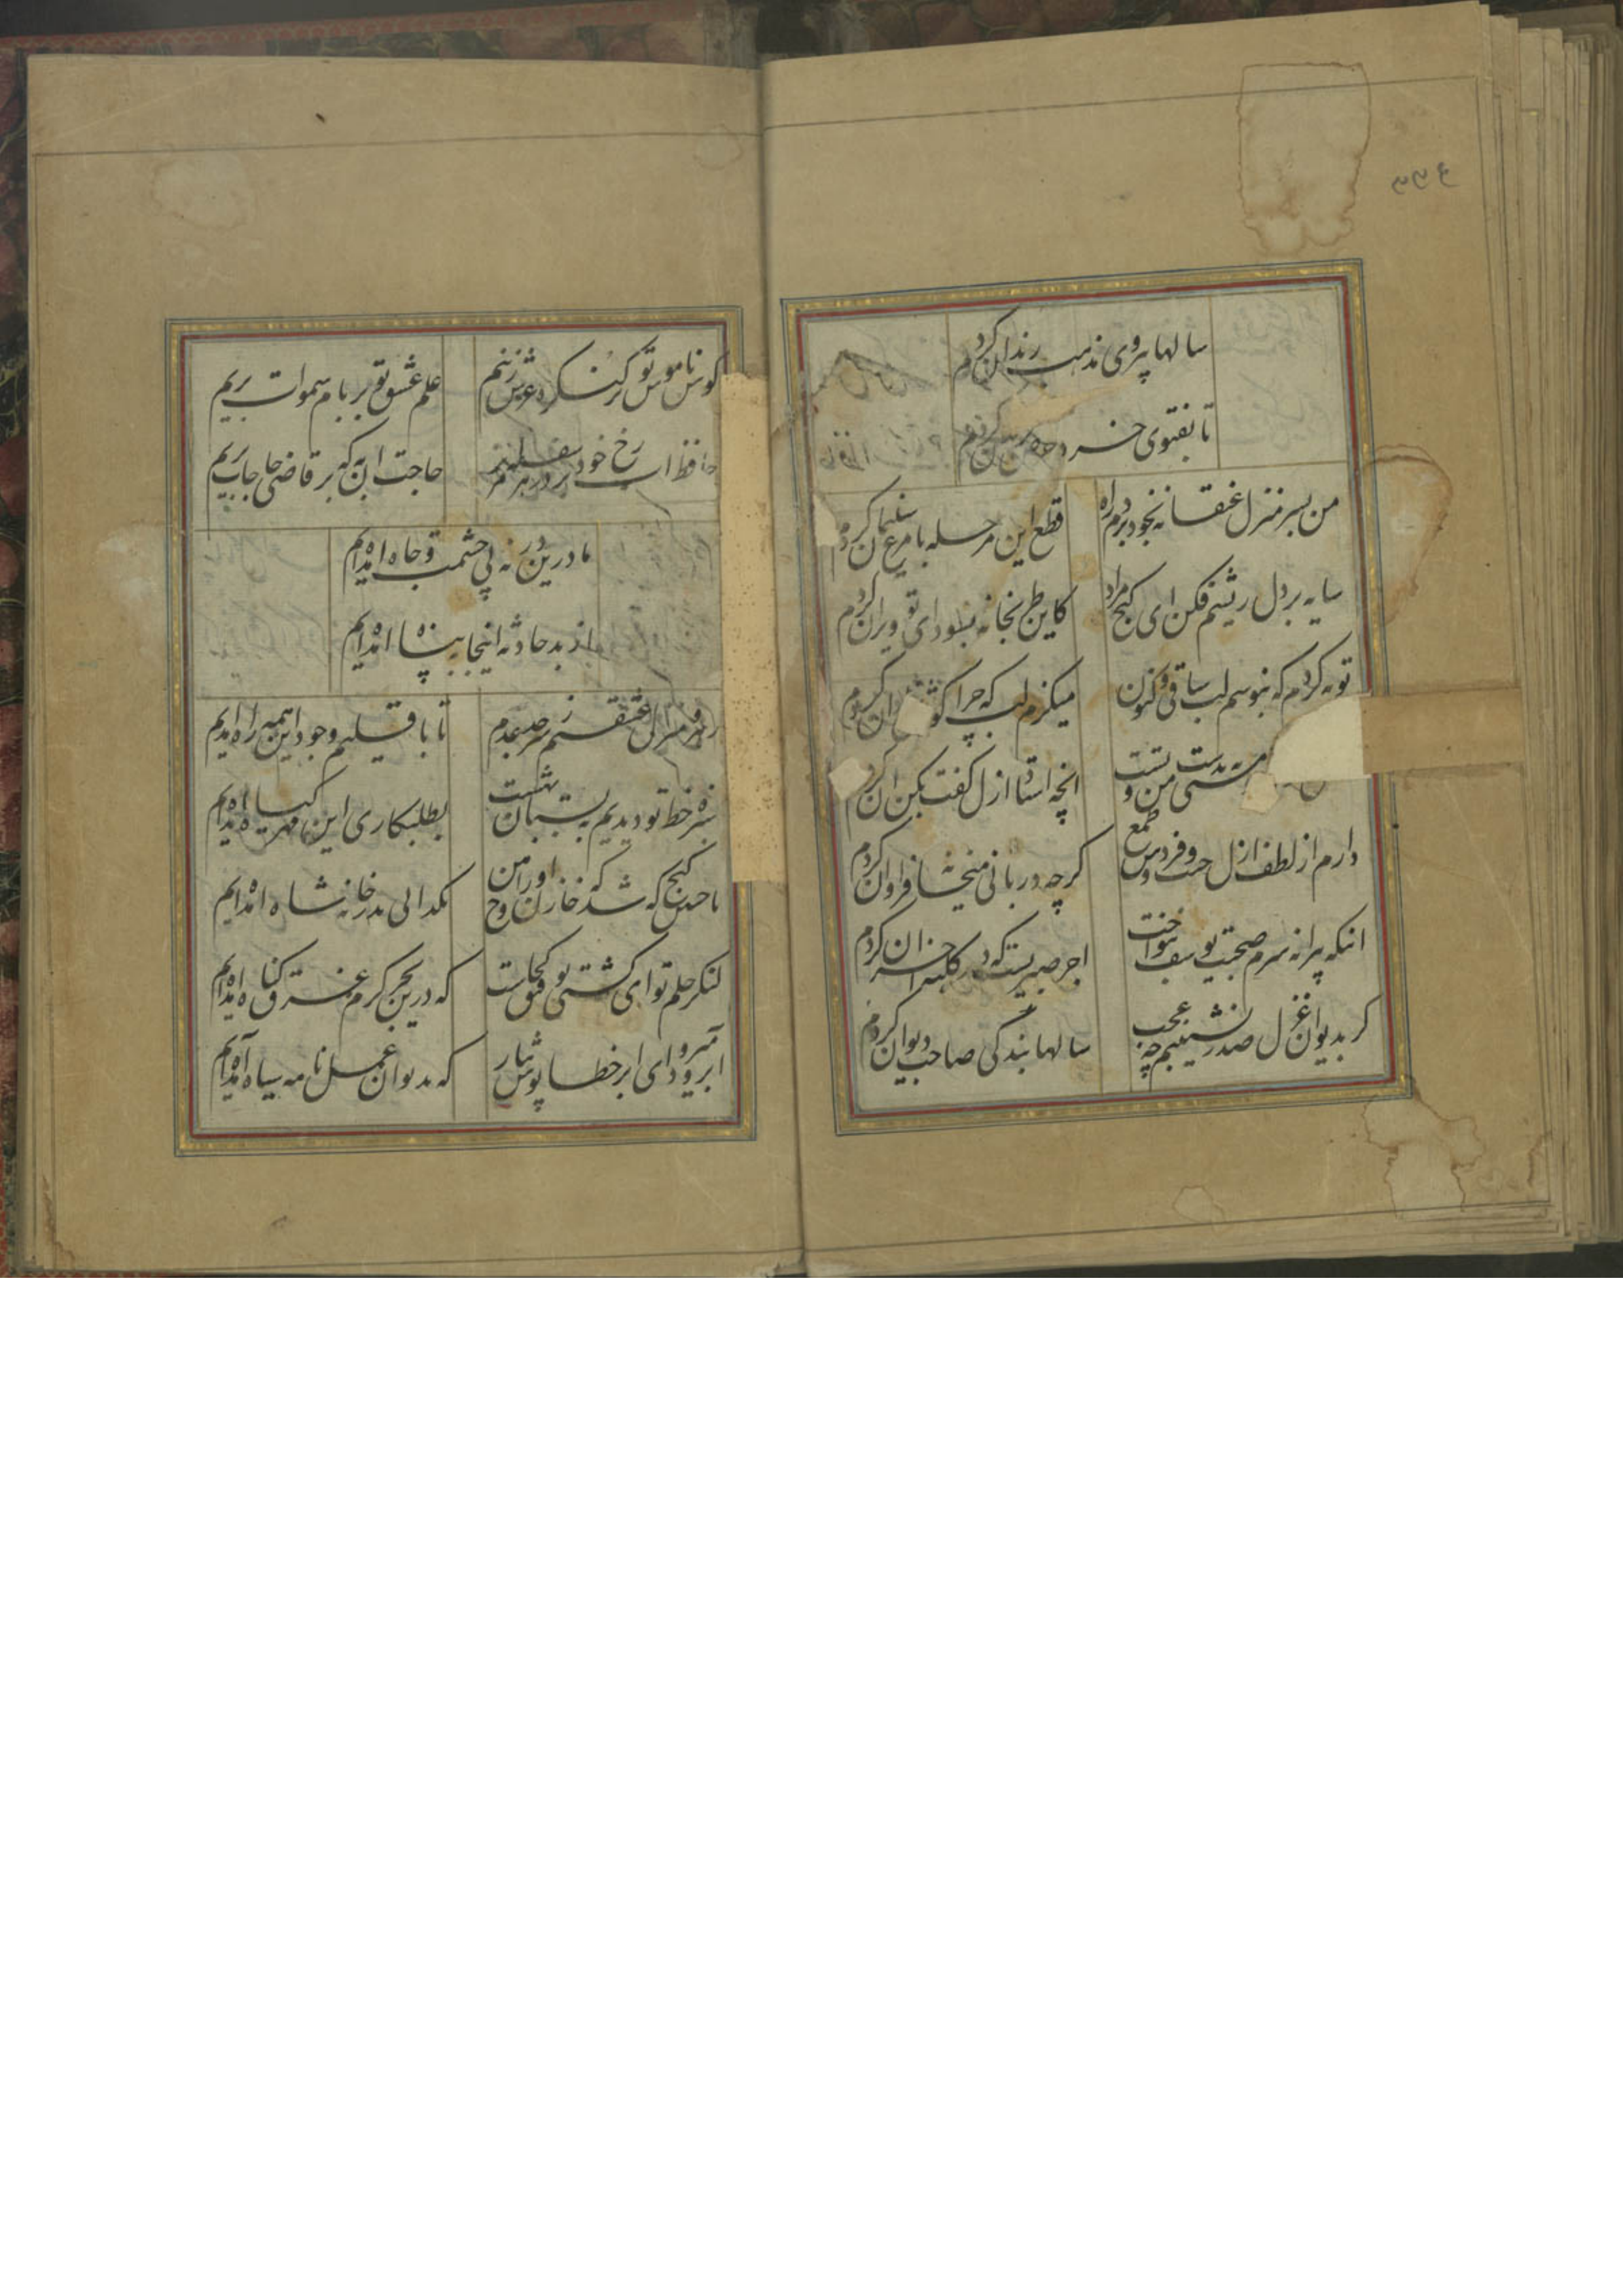 سالها پیروی مذهب رندان کردم
تا بفتوی خرد حرص بزندان کردم
من بسر منزل عنقا نه بخود بردم راه
قطع این مرحله با مرغ سلیمان کردم
سایه بر دل ریشم فکن ای کنج مراد
کاین طربخانه بسودای تو ویران کردم
توبه کردم که نبوسم لب ساقی و کنون
میکزم لب که چرا کوش ان کردم
مستی بدست من و تست
انچه استاد ازل کفت بکن ان کردم
دارم از لطف ازل جنت فردوس طمع
کرچه دربانی میخانه فراوان کردم
انکه پیرانه سرم صحبت یوسف بنواخت
اجر صبریست که در کلبه احزان کردم
کر بدیوان غزل صدر نشینم چه عجب
سالها بندکی صاحب دیوان کردم
کوس ناموس تو بر کنکره عرش زنیم
علم عشق تو بر بام سموات بریم
حافظ اب رخ خود بر در هر سفله مریز
حاجت ان به که بر قاضی حاجات بریم
ما درین در نه پی حشمت و جاه امده‌ایم
از بد حادثه اینجا به پناه امده‌ایم
رهرو منزل عشقیم ز سرحد عدم
تا باقلیم وجود این همه راه امده‌ایم
سبزه خط تو دیدیم ز بستان بهشت
بطلبکاری این مهر کیاه امده‌ایم
با چنین کنج که شد خازن او روح امین
بکدائی بدر خانه شاه امده‌ایم
لنکر حلم تو ای کشتی توفیق کجاست
که درین بحر کرم غرق کناه امده‌ایم
ابرو میرود ای ابر خطاپوش ببار
که بدیوان عمل نامه سیاه آمده‌ایم